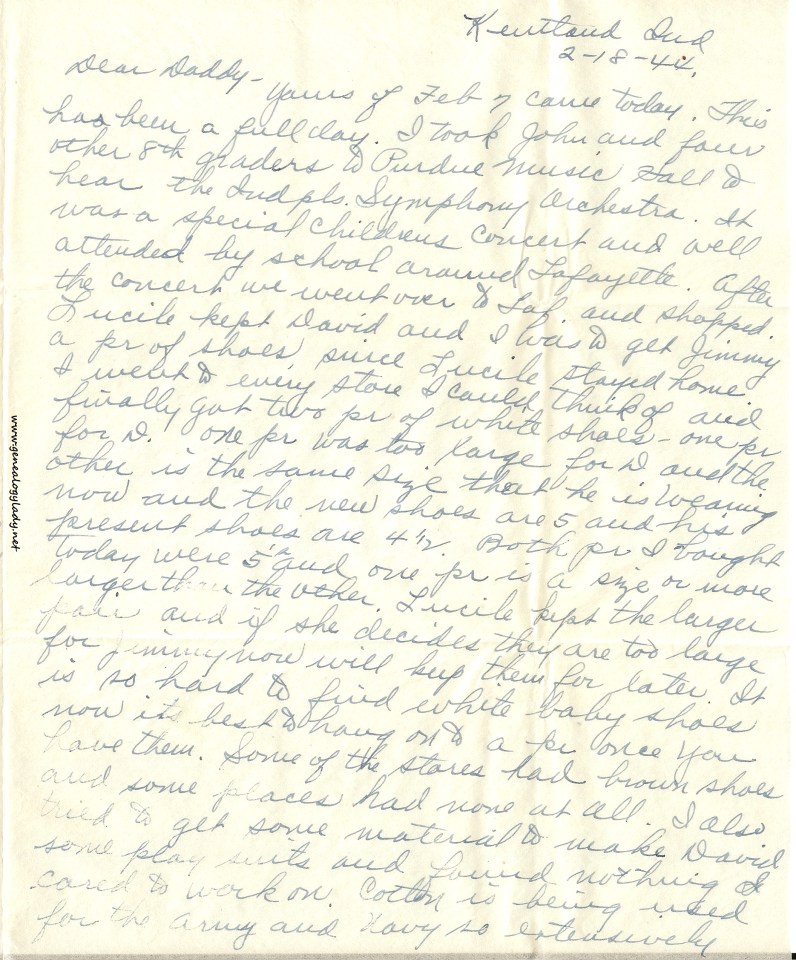 Kentland Ind
2-18-44.
Dear Daddy-
Yours of Feb 7 came today. This
has been a full day. I took John and four
other 8th graders to Purdue Music Hall to
hear the Indpls. Symphony Orchestra. It
was a special childrens concert and well
attended by school around Lafayette. After
the concert we went over to Laf. and shopped.
Lucile kept David and I was to get Jimmy
a pr of shoes since Lucile stayed home.
I went to every store I could think of and
finally got two pr of white shoes - one pr
for D. one pr was too large for D and the
other is the same size that he is wearing
now and the new shoes are 5 and his
present shoes are 4½. Both pr I bought
today were 5's and one pr is a size or more
larger than the other. Lucile kept the larger
pair and if she decides they are too large
for Jimmy now will keep them for later. It
is so hard to find white baby shoes
now its best to hang on to a pr once you
have them. Some of the stores had brown shoes
and some places had none at all. I also
tried to get some material to make David
some play suits and found nothing I
cared to work on. Cotton is being used
for the army and Navy so extensively
www.genealogylady.net